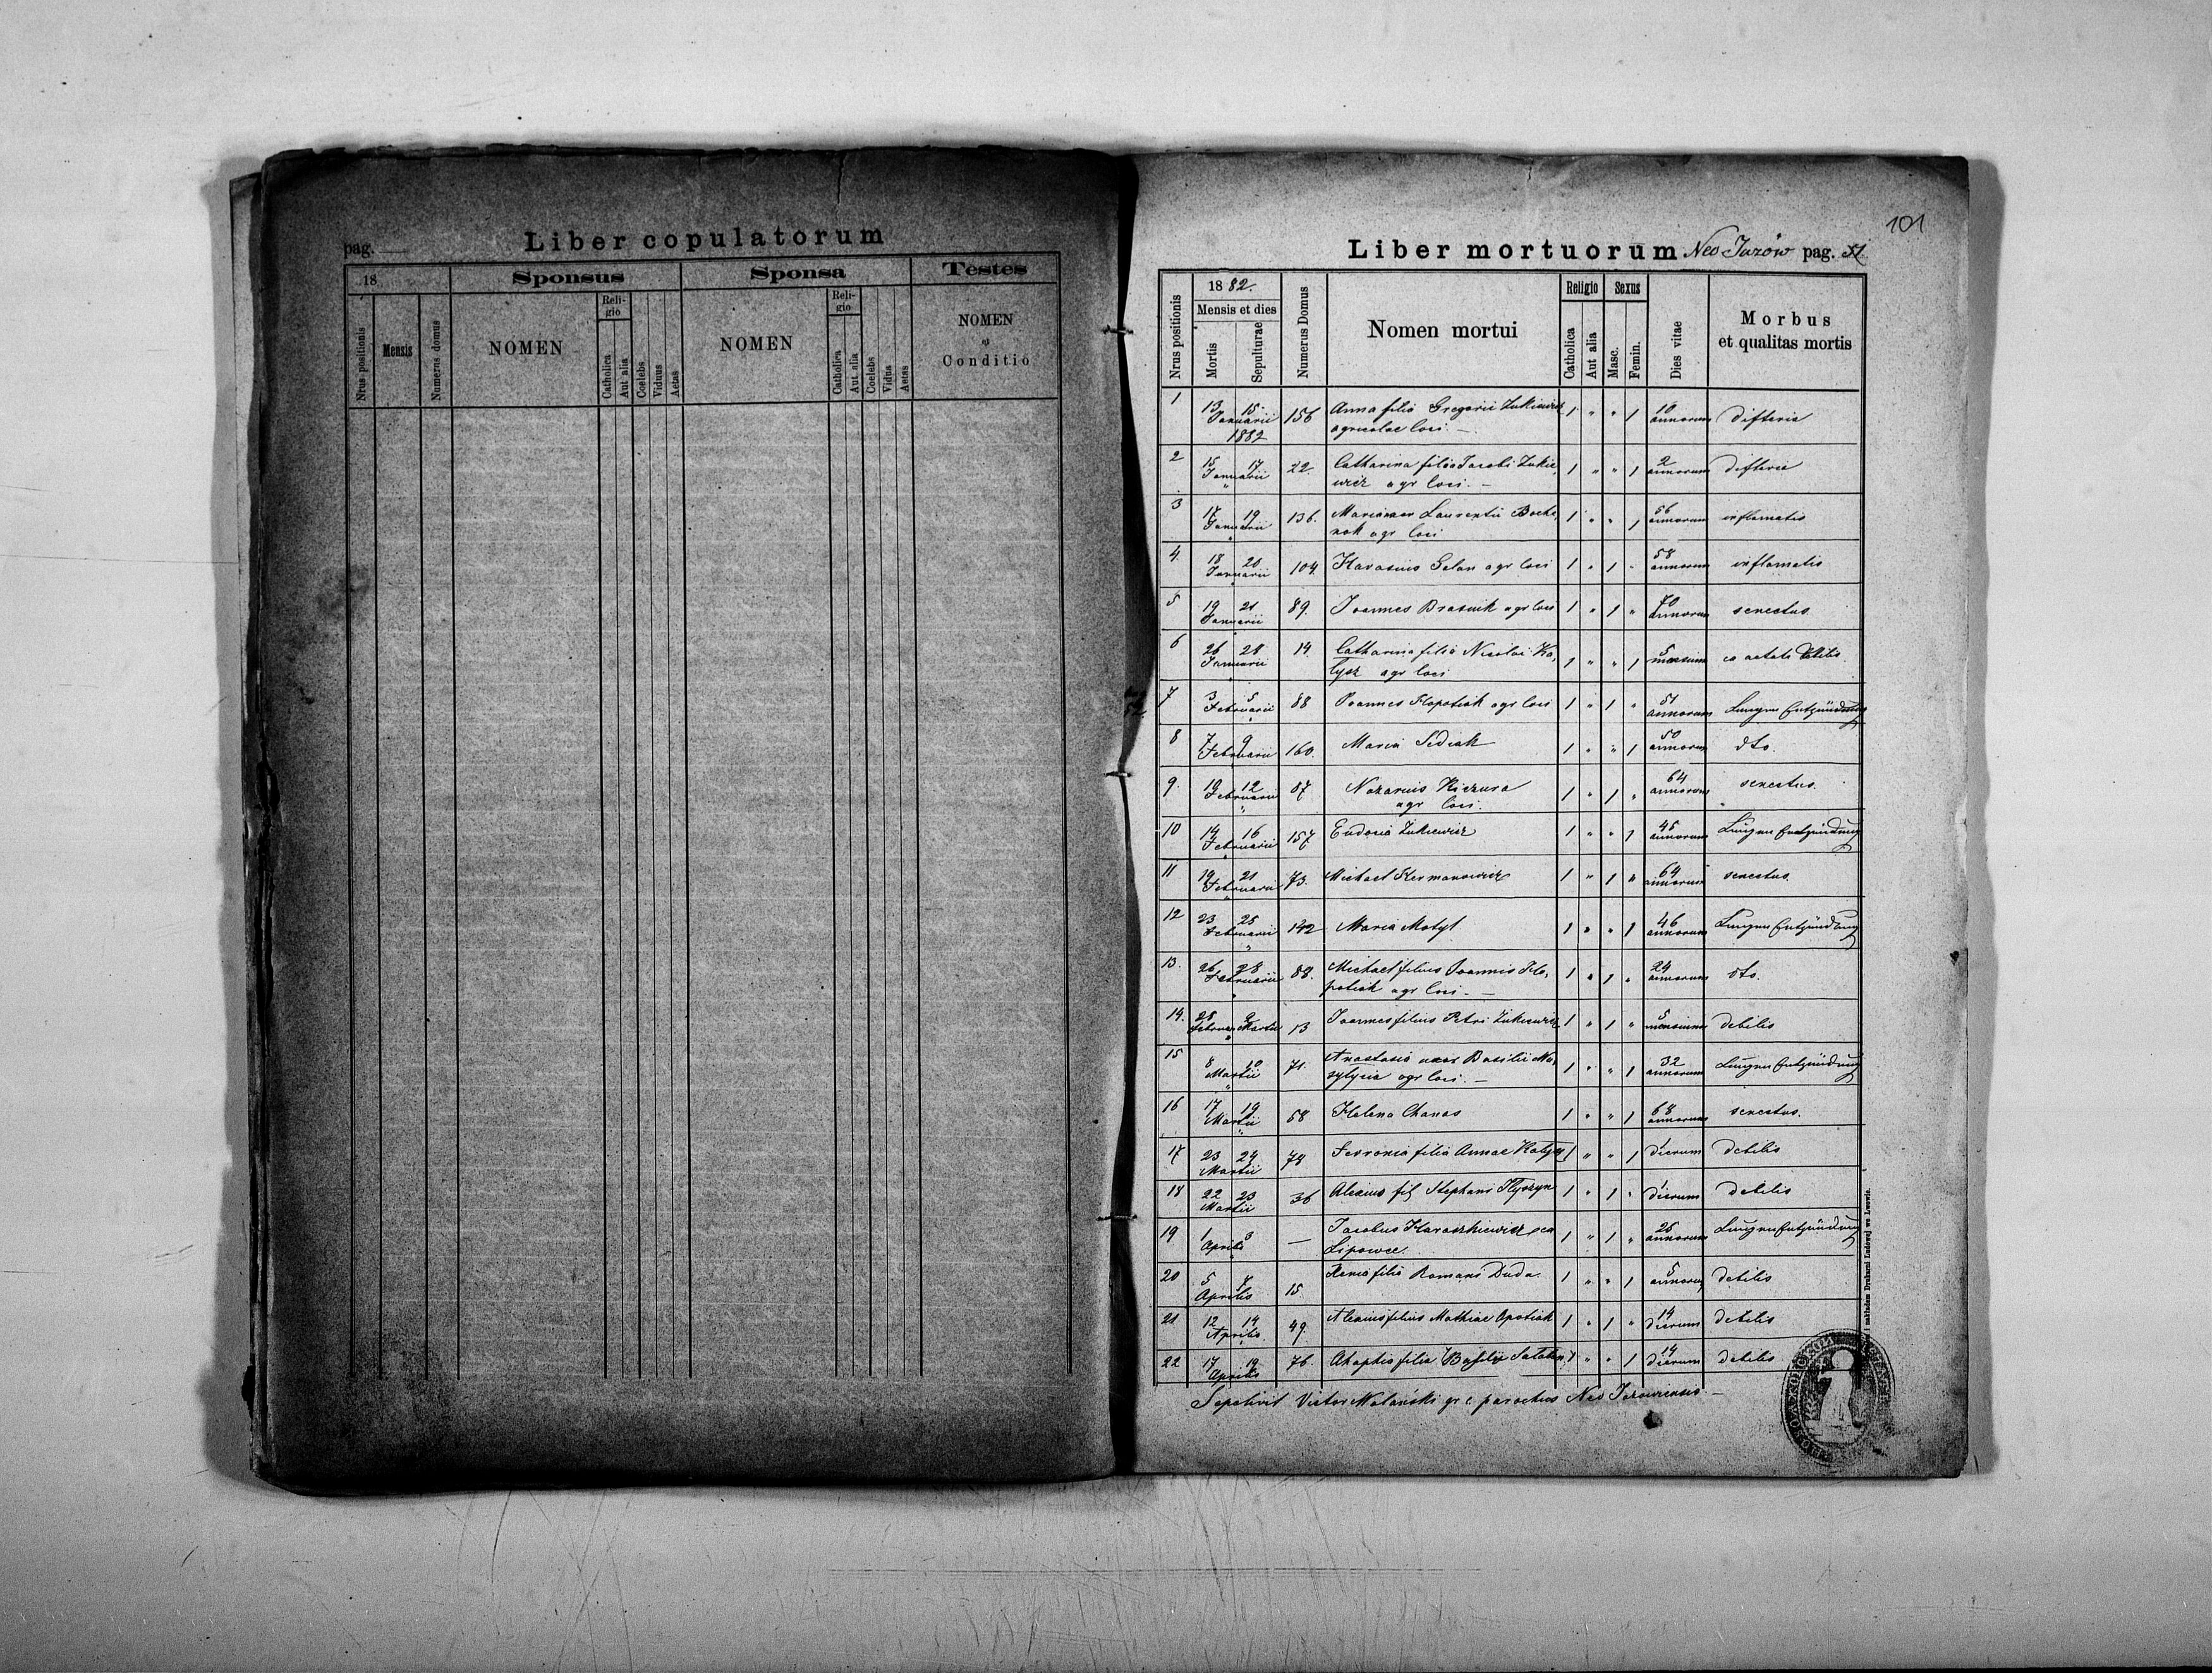 pag.
Liber copulatorum
18
Sponsus
Sponsa
Testes
Nrus positionis
Mensis
Numerus domus
NOMEN
Religio
Catholica
Aut alia
Coelebs
Viduus
Aetas
NOMEN
Religio
Catholica
Aut alia
Coelebs
Vidua
Aetas
NOMEN
et
Conditio
101
Liber mortuorum Neo Jazów pag.
Nrus positionis
1882.
Mensis et dies
Mortis
Sepulturae
Numerus Domus
Nomen mortui
Religio
Catholica
Aut alia
Sexus
Masc.
Femin.
Dies vitae
Morbus
et qualitas mortis
1 13 15 Januarii 1882 156 Anna filia Gregorii Zukiewicz 1 " " 1 10 annorum difteria
agricolae loci. —
2 15 17 Januarii 22. Catharina filia Jacobi Zukie, 1 " " 1 2 annorum difteria
wicz agr loci. —
3 17 19 Januarii 136. Laurentii 1 " " 1 56 annorum inflamatio
agr loci
4. 18 20 Januarii 104. agr loci 1 " 1 " 58 annorum inflamatio
5 19 21 Januarii 89. Joannes agr loci 1 " 1 " 70 annorum senectus
6 26 28 Januarii 14 Catharina filia Nicolai Ha, 1 " " 1 5 mensium ex aetate debilis
lysz agr loci
7 3 5 Februarii 88 Joannes Klopotiak agr loci 1 " 1 " 51 annorum Lungen Entzündung
8 7 9 Februarii 160. Maria Sediak 1 " " 1 50 annorum dto.
9. 10 12 Februarii 87. Nazarius Kiczura 1 " 1 " 64 annorum senectus.
agr loci.
10 14 16 Februarii 157 Eudocia Zukiewicz 1 " " 1 45 annorum Lungen Entzündung
11 19 21 Februarii 73. Michael Hermanowicz 1 " 1 " 64 annorum senectus.
12 23 25 Februarii 142 Maria Motyl 1 " " 1 46 annorum Lungen Entzündung
13. 26 28 Februarii 88. Michael filius Joannis Klo, 1 " 1 " 24 annorum dto.
potiak agr loci. —
14. 28 Februar 2 Martii 13 Joannes filius Petri Zukiewicz 1 " 1 " 5 mensium debilis
15 8 10 Martii 71. Anastasia uxor Basilii 1 " " 1 32 annorum Lungen Entzündung
agr loci. —
16 17 19 Martii 58 Helena Chanas 1 " " 1 68 annorum senectus.
17 23 24 Martii 78 filia Annae 1 " " 1 1 dierum debilis
18 22 23 Martii 36 Alexius fil Stephani 1 " 1 " 1 dierum debilis
19 1 3 Aprilis — Jacobus ex 1 " 1 " 26 annorum Lungen Entzündung
Lipowce.
20 5 7 Aprilis 15. Xenia filia Romani Duda. 1 " " 1 5 annorum debilis
21 12 14 Aprilis 49. Alexius filius Mathiae Opotiak 1 " 1 " 14 dierum debilis
22 17 19 Aprilis 76. filia Basilii 1 " " 1 14 dierum debilis
Sepelivit Victor gr c parochus Neo
i nakładem Drukarni Ludowej we Lwowie.